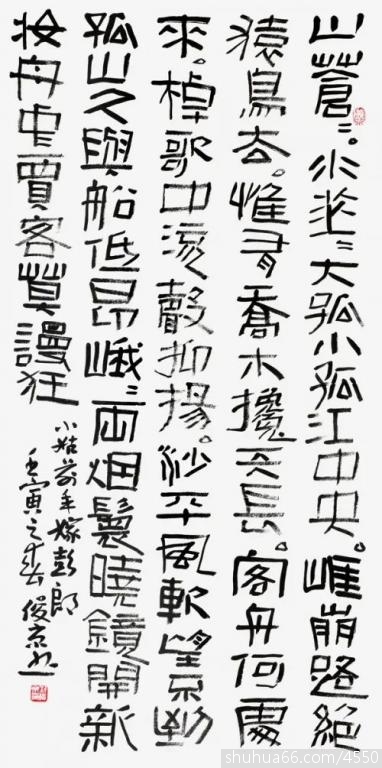 山蒼〻。水茫〻大孤小孤江中央。崖崩路絕
猿鳥去。惟有喬木攙天長。客舟何處
來。棹歌中流聲抑揚。沙平風軟望不到
孤山久與船低昂峨〻兩烟鬟曉鏡開新
妝舟中賈客莫謾狂
小姑前年嫁彭郎
壬寅之春俊京书
shuhua66.com/4550